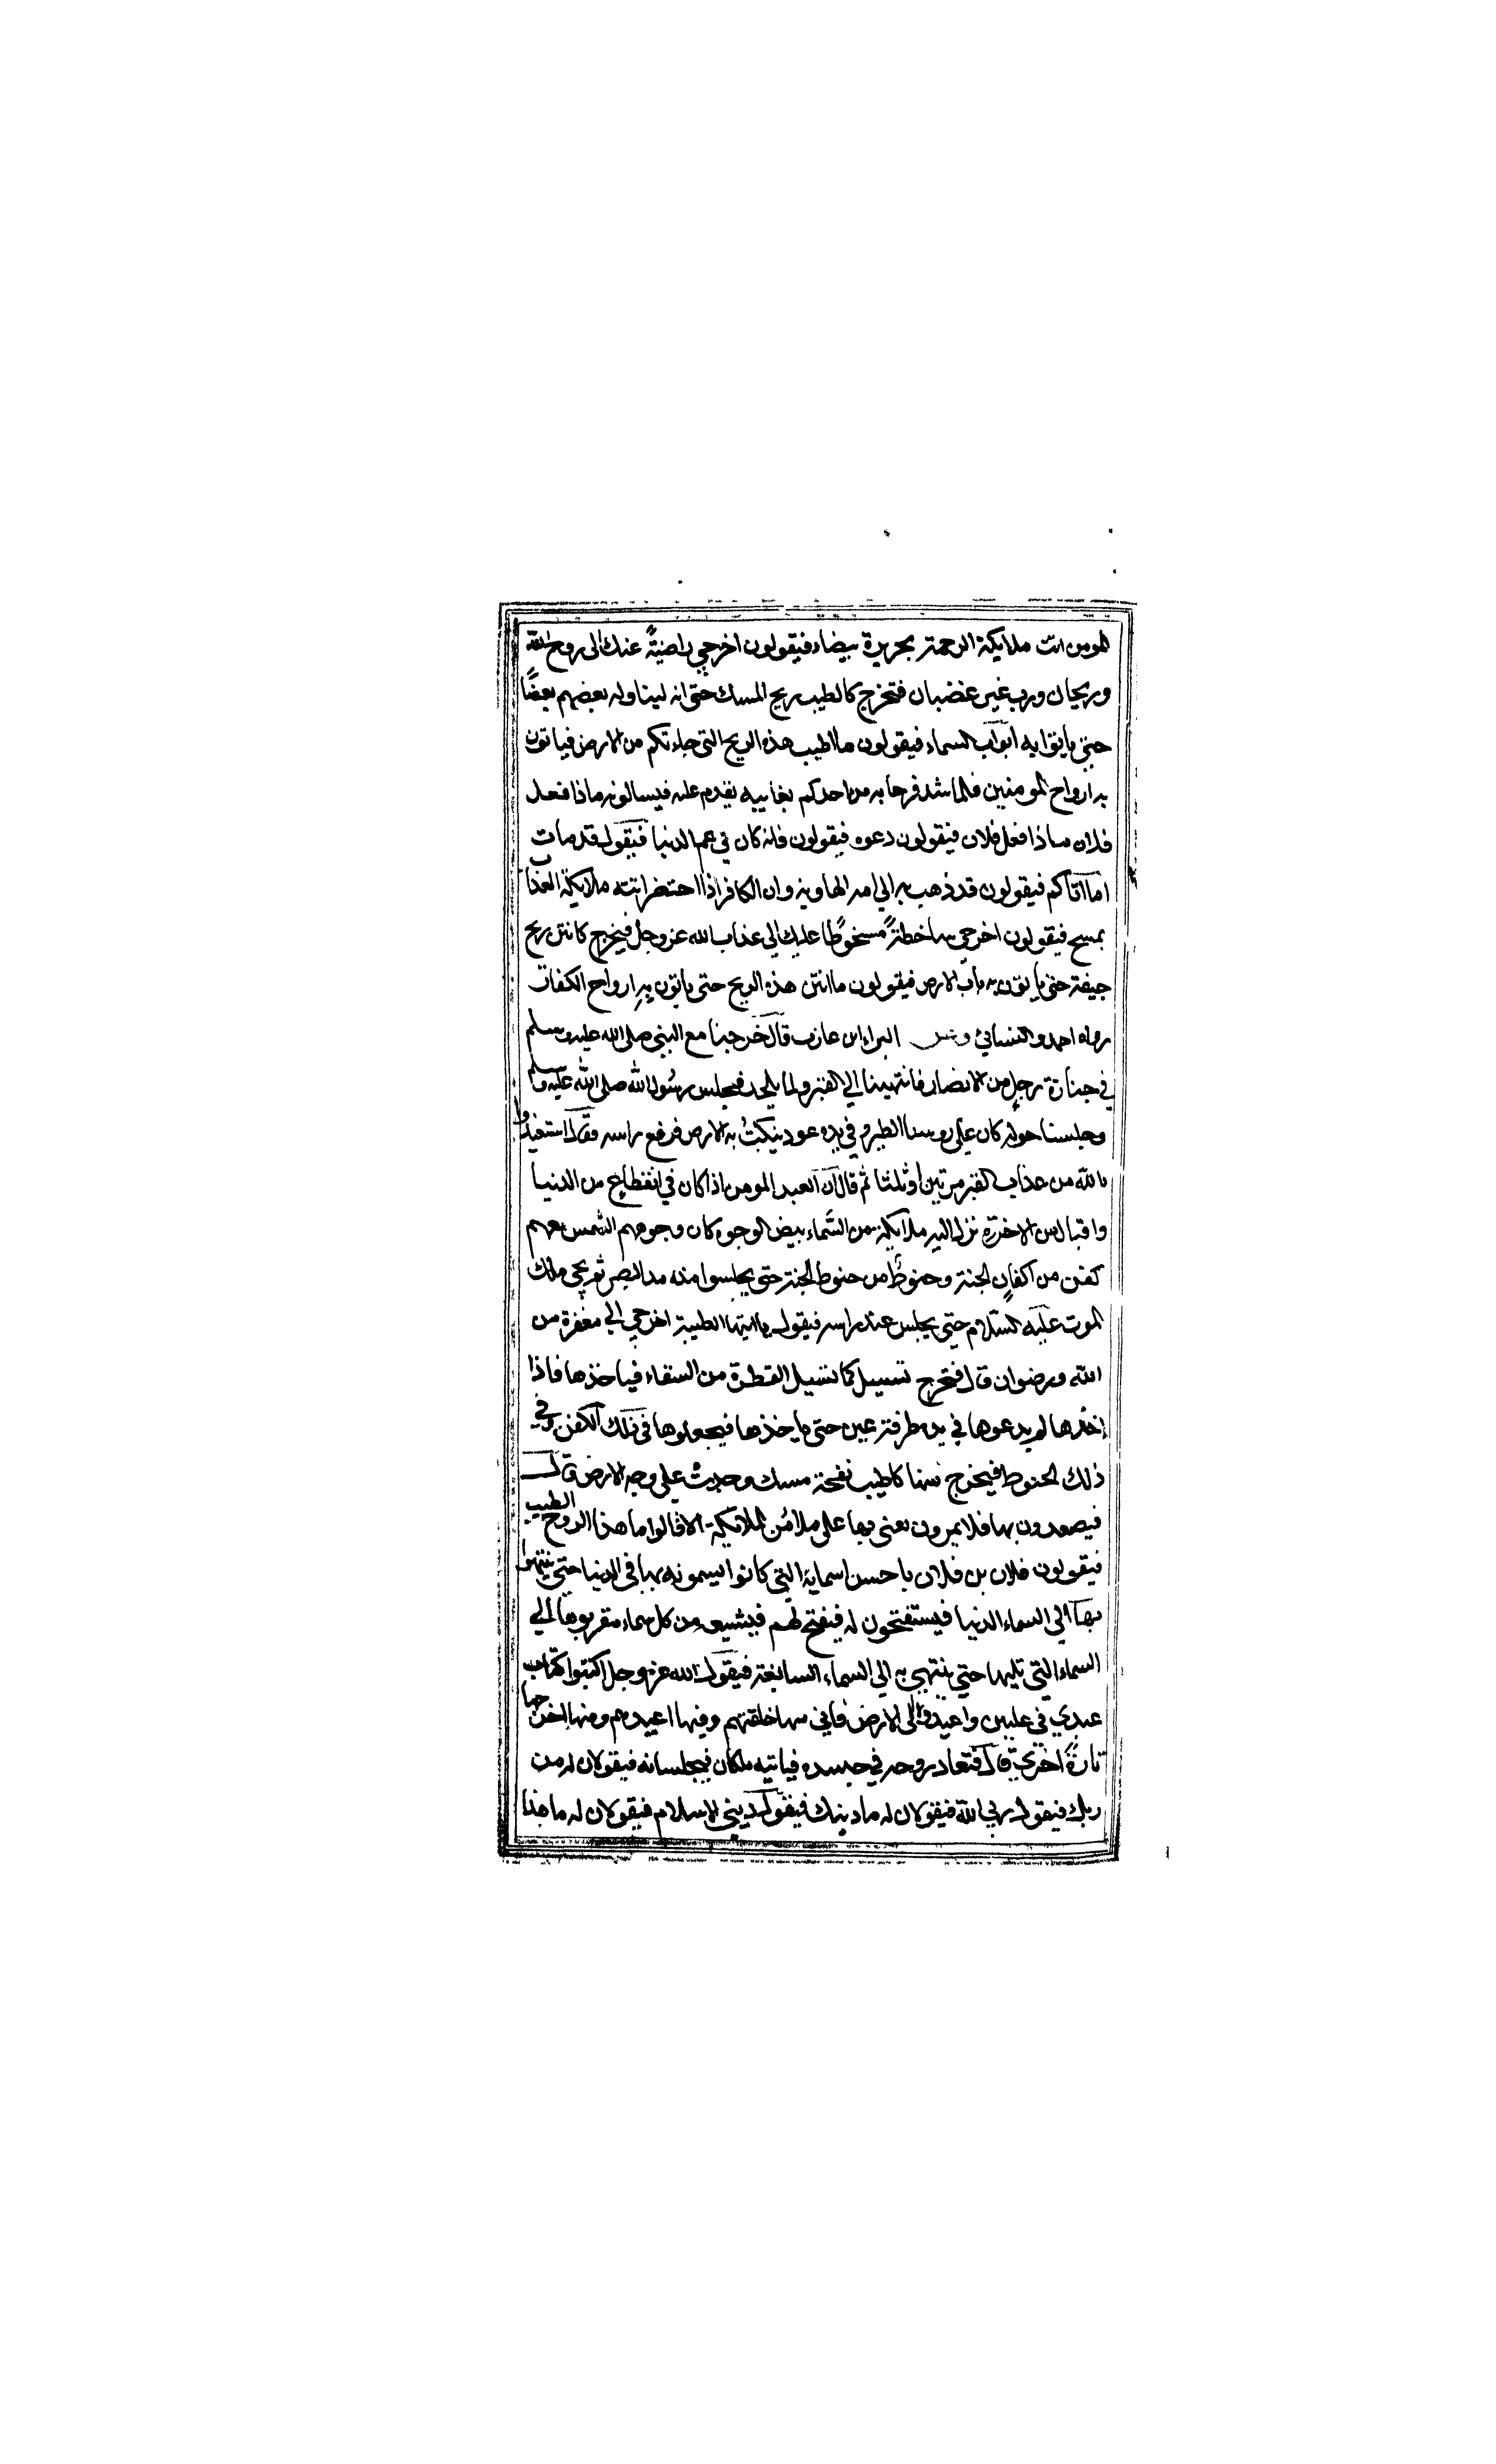 المومن اتت ملايكة الرحمة بحريرة بيضاء فيقولون اخرجي راضيةً عنك الى روح الله
وريحان ورب غير غضبان فتخرج كالطيب ريح المسك حتى انه ليناوله بعضهم بعضًا
حتى ياتوا به ابواب السماء فيقولون ما اطيب هذه الريح التي جاءتكم من الارض فياتون
به ارواح المومنين فلهم اشد فرحا به من احدكم بغايبه يقدم عليه فيسالونه ماذا فعل
فلان ماذا فعل فلان فيقولون دعوه فيقولون فانه كان في غم الدنيا فيقول قد مات
اما اتاكم فيقولون قد ذهب به الي امه الهاوية وان الكافر اذا احتضر اتته ملايكة العذاب
بمسح فيقولون اخرجي ساخطةً مسخوطًا عليك الي عذاب الله عز وجل فيخرج كانتن ريح
جيفة حتى ياتون به باب الارض فيقولون ما انتن هذه الريح حتى ياتون به ارواح الكفار
رواه احمد والنسائي وعن البراء بن عازب قال خرجنا مع النبي صلى الله عليه وسلم
في جنازة رجل من الانصار فانتهينا الي القبر ولما يلحد فجلس رسول الله صلى الله عليه وسلم
وجلسنا حوله كان على روسنا الطير وفي يده عود ينكت به الارض فرفع راسه وقال استعيذوا
بالله من عذاب القبر مرتين او ثلثا ثم قال ان العبد المومن اذا كان في انقطاع من الدنيا
واقبال من الاخرة نزل اليه ملايكة من السماء بيض الوجوه كان وجوههم الشمس معهم
كفن من اكفان الجنة وحنوط من حنوط الجنة حتى يجلسوا منه مد البصر ثم يجي ملك
الموت عليه السلام حتى يجلس عند راسه فيقول يا ايتها الطيبة اخرجي الي مغفرة من
الله ورضوان قال فتخرج تسيل كما تسيل القطرة من السقاء فياخذها فاذا
اخذها لم يدعوها في يده طرفة عين حتى ياخذها فيجعلوها في ذلك الكفن وفي
ذلك الحنوط فيخرج منها كاطيب نفحة مسك وجدت على وجه الارض قال
فيصعدون بها فلا يمرون يعني بها على ملا من الملايكة الا قالوا ما هذا الروح الطيب
فيقولون فلان بن فلان باحسن اسمايه التي كانوا يسمونه بها في الدنيا حتى ينتهوا
بها الي السماء الدنيا فيستفتحون له فيفتح لهم فيشيعه من كل سماء مقربوها الي
السماء التي تليها حتى ينتهي به الي السماء السابعة فيقول الله عز وجل اكتبوا كتاب
عبدي في عليين واعيدوه الى الارض فاني منها خلقتهم وفيها اعيدهم ومنها اخرجها
تارةً اخرى قال فتعاد روحه في جسده فياتيه ملكان فيجلسانه فيقولان له من
ربك فيقول ربي الله فيقولان له ما دينك فيقول ديني الاسلام فيقولان له ما هذا